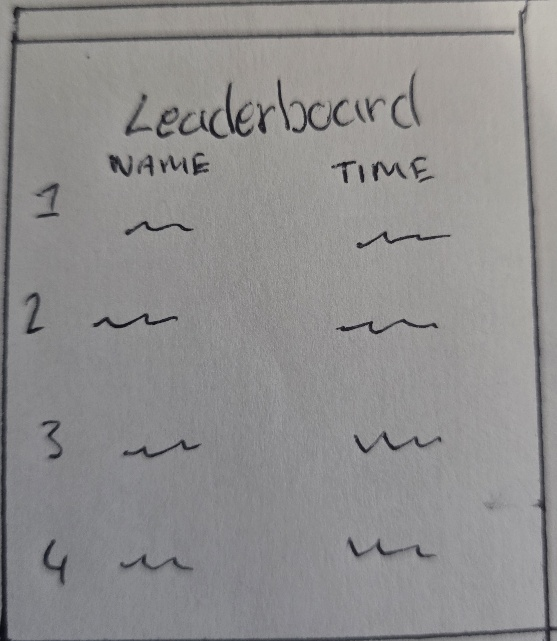 Leaderboard
NAME TIME
1
2
3
4